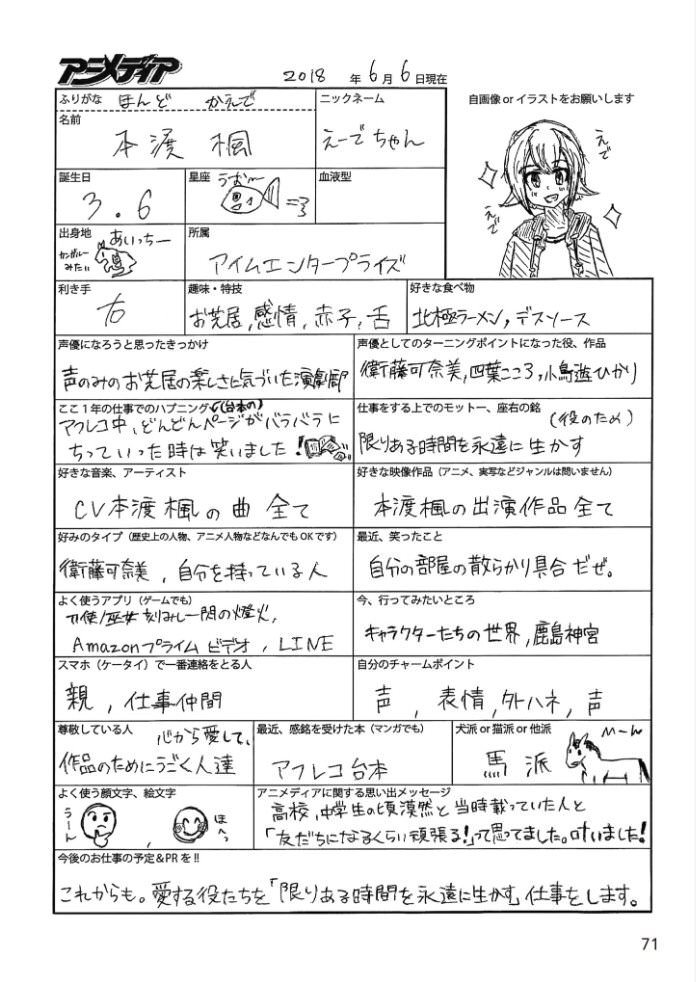 アニメディア
2018 年 6 月 6 日現在
ふりがな ほんど かえで
名前
本渡 楓
ニックネーム
えーでちゃん
自画像 or イラストをお願いします
えで
えで
誕生日
3.6
星座
うおー
血液型
出身地
あいっちー
カンガルー
みたい
所属
アイムエンタープライズ
利き手
右
趣味・特技
お芝居,感情,赤子,舌
好きな食べ物
北極ラーメン,デスソース
声優になろうと思ったきっかけ
声のみのお芝居の楽しさに気づいた演劇部
声優としてのターニングポイントになった役、作品
衛藤可奈美,四葉こころ,小鳥遊ひかり
ここ1年の仕事でのハプニング
(台本の)
アフレコ中、どんどんページがバラバラに
ちっていった時は笑いました!
仕事をする上でのモットー、座右の銘
(役のため)
限りある時間を永遠に生かす
好きな音楽、アーティスト
CV本渡楓の曲 全て
好きな映像作品(アニメ、実写などジャンルは問いません)
本渡楓の出演作品全て
好みのタイプ(歴史上の人物、アニメ人物などなんでもOKです)
衛藤可奈美,自分を持っている人
最近、笑ったこと
自分の部屋の散らかり具合だぜ。
よく使うアプリ(ゲームでも)
刀使ノ巫女 刻みし一閃の燈火,
Amazonプライム ビデオ,LINE
今、行ってみたいところ
キャラクターたちの世界,鹿島神宮
スマホ(ケータイ)で一番連絡をとる人
親,仕事仲間
自分のチャームポイント
声,表情,外ハネ,声
尊敬している人
心から愛して、
作品のためにうごく人達
最近、感銘を受けた本(マンガでも)
アフレコ台本
犬派 or 猫派 or 他派
馬派
よく使う顔文字、絵文字
うーん
,
ほへっ
アニメディアに関する思い出メッセージ
高校,中学生の頃漠然と当時載っていた人と
「友だちになるくらい頑張る!」って思ってました。叶いました!
今後のお仕事の予定&PRを!!
これからも。愛する役たちを「限りある時間を永遠に生かす」仕事をします。
71